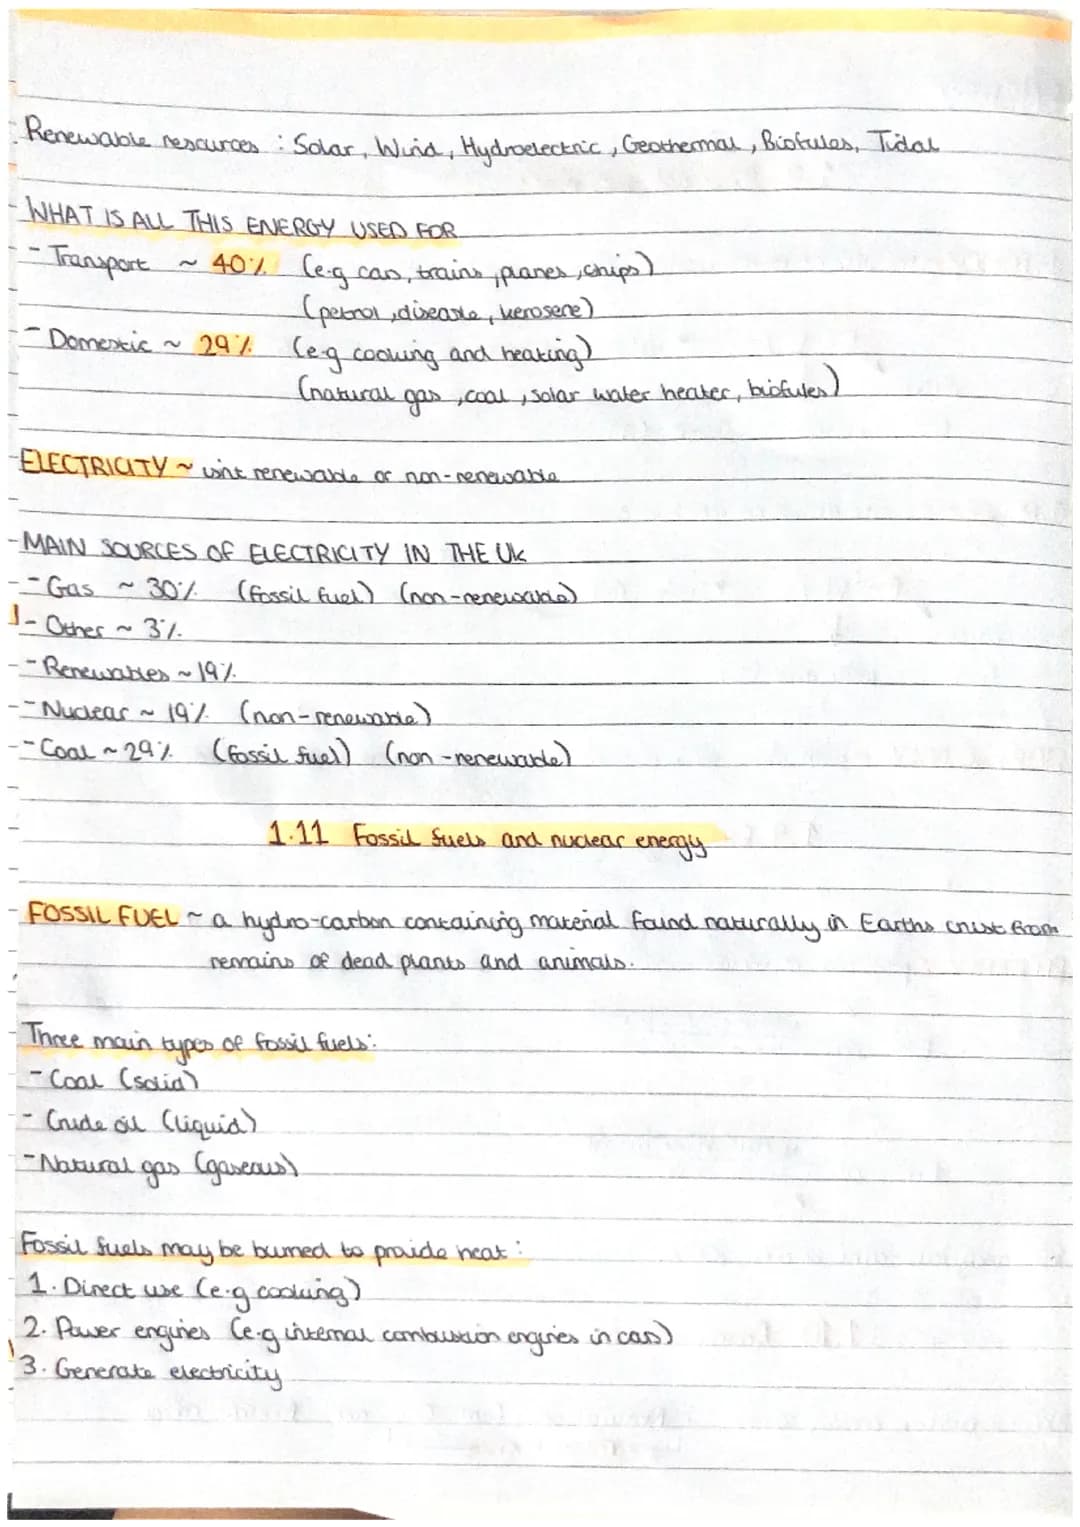 Renewable resources : Solar, Wind, Hydroelectric, Geothermal, Biofules, Tidal
WHAT IS ALL THIS ENERGY USED FOR
- Transport ~ 40% (e.g cars, trains, planes, ships)
(petrol, disease, kerosene)
- Domestic ~ 29% (e.g cooking and heating)
(natural gas, coal, solar water heater, biofules)
ELECTRICITY ~ isnt renewable or non-renewable
- MAIN SOURCES OF ELECTRICITY IN THE UK
- Gas ~ 30% (fossil fuel) (non-renewable)
- Other ~ 3%
- Renewables ~ 19%
- Nuclear ~ 19% (non-renewable)
- Coal ~ 29% (fossil fuel) (non-renewable)
1.11 Fossil fuels and nuclear energy
FOSSIL FUEL ~ a hydro-carbon containing material found naturally in Earths crust from
remains of dead plants and animals.
Three main types of fossil fuels:
- Coal (solid)
- Crude oil (liquid)
- Natural gas (gaseous)
Fossil fuels may be burned to provide heat :
1. Direct use (e.g cooking)
2. Power engines (e.g internal combustion engines in cars)
3. Generate electricity